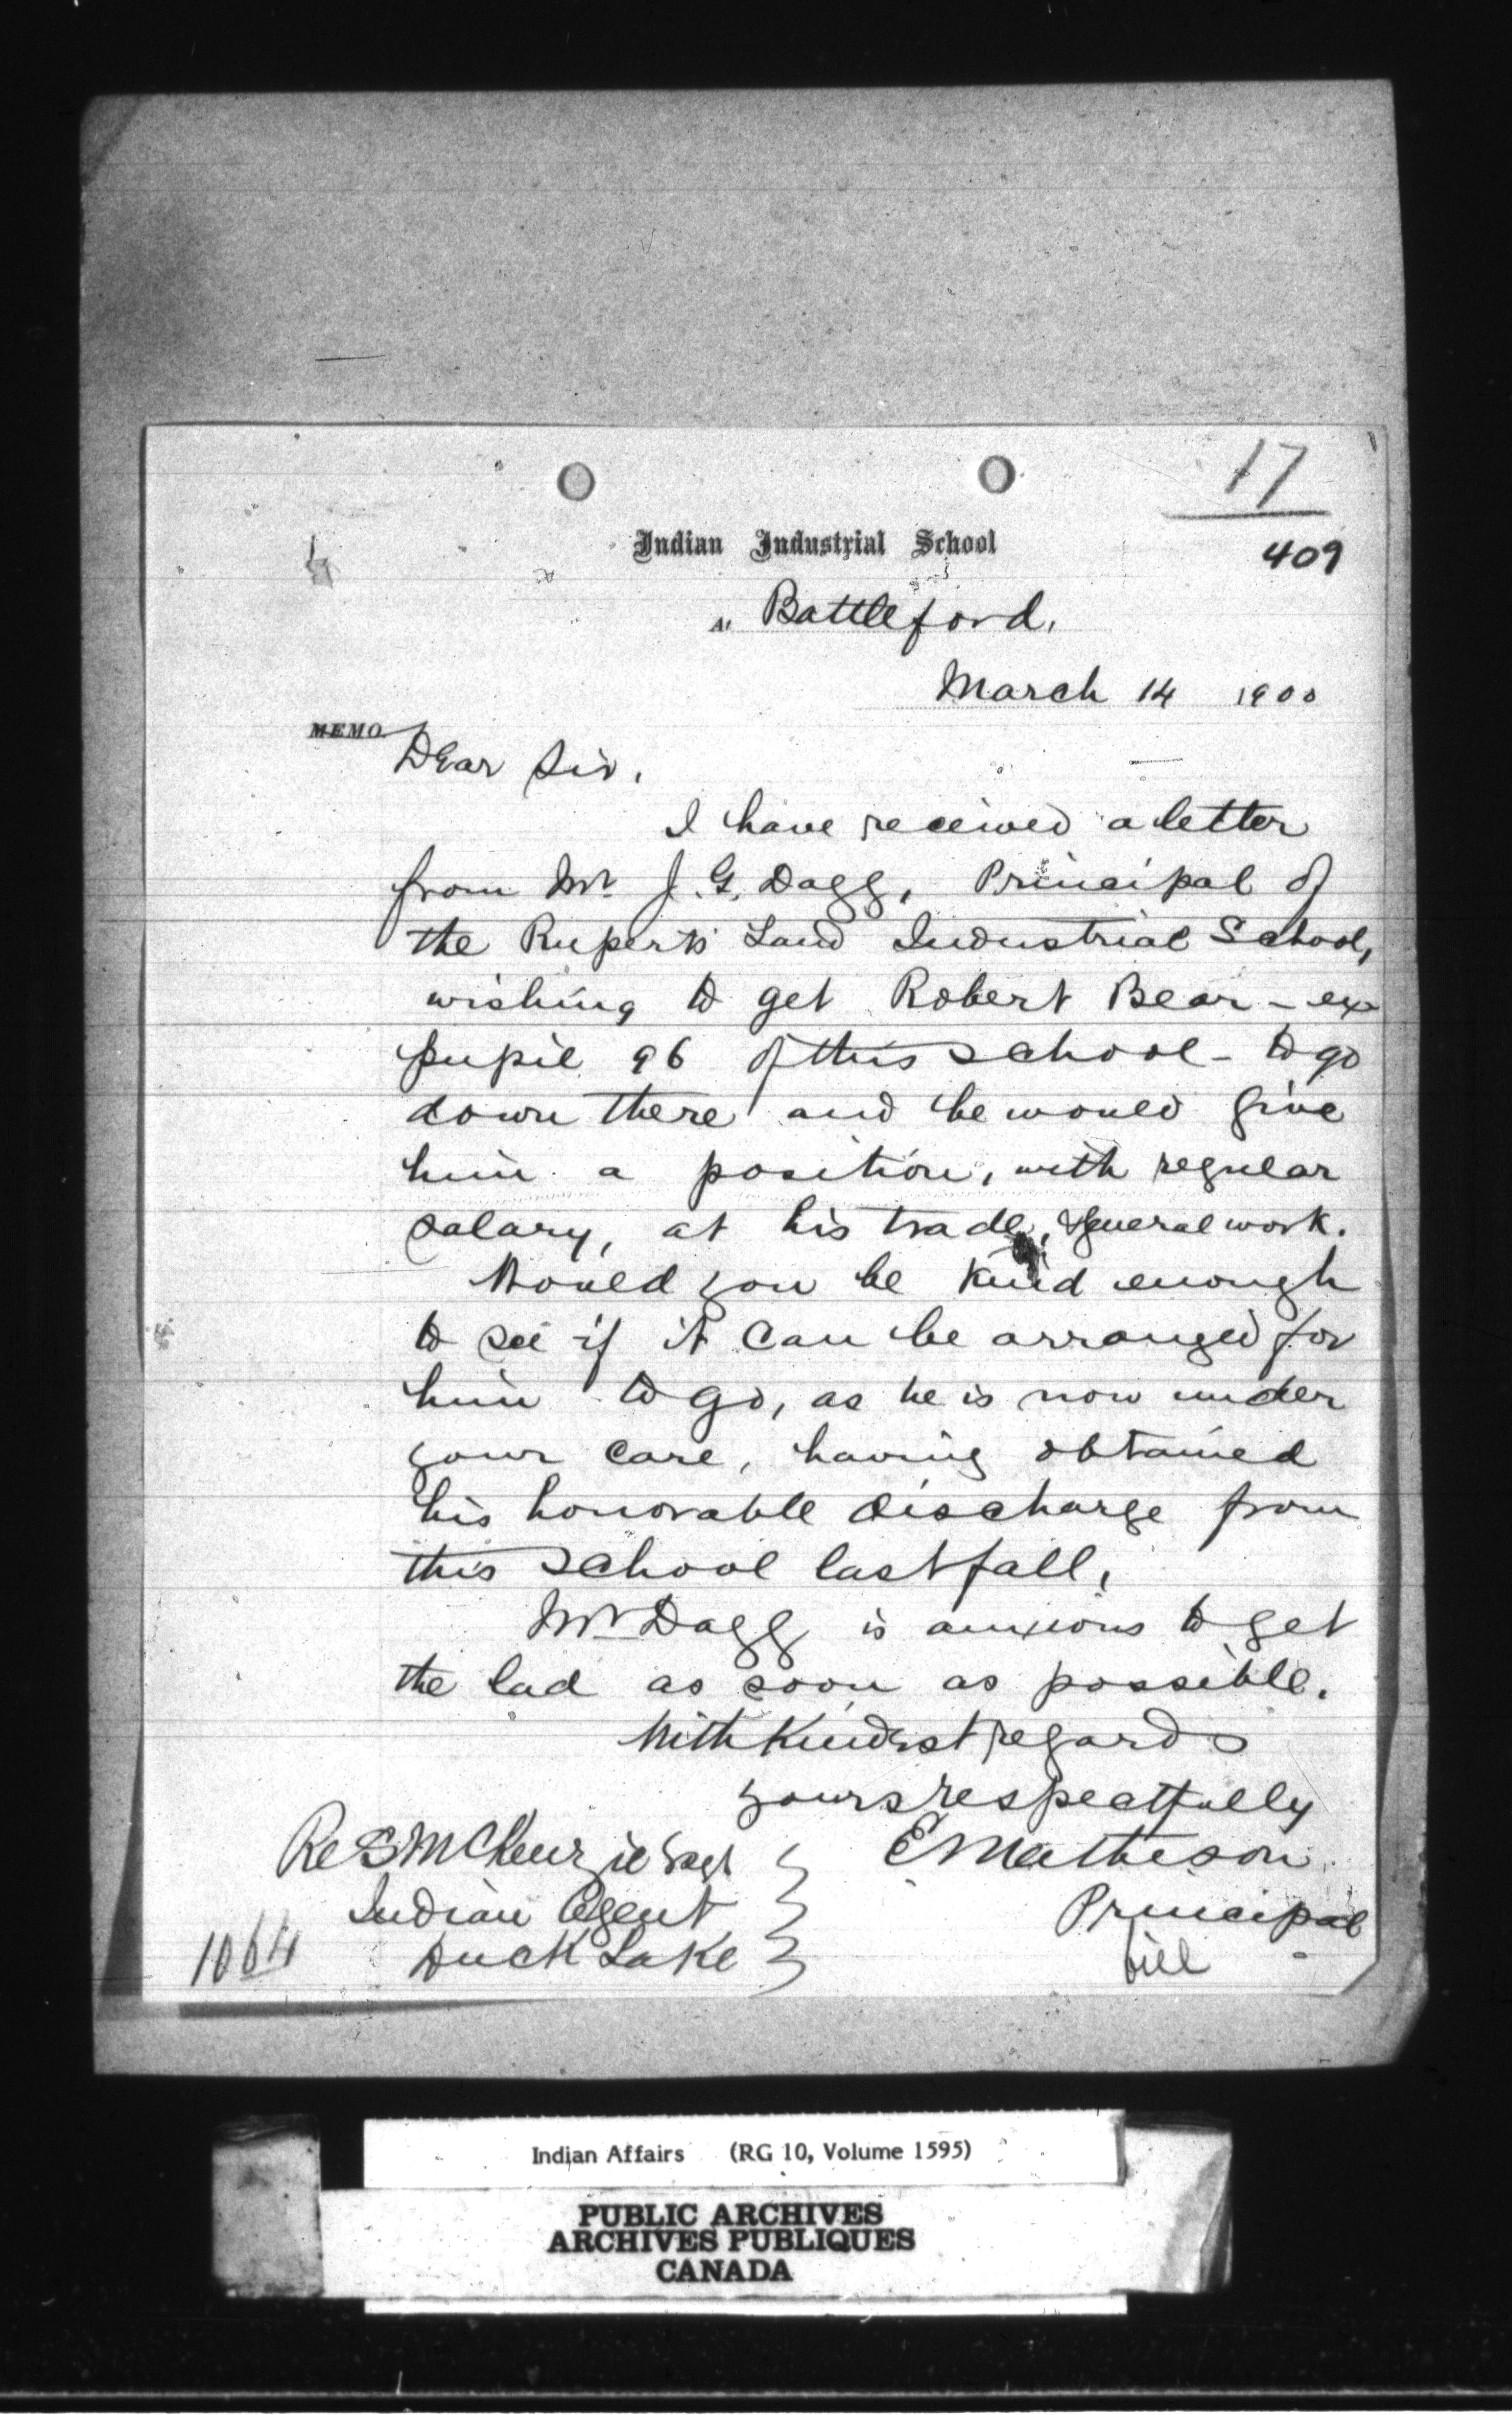 17
409
Indian Industrial School
At Battleford.
March 14 1900
MEMO.
Dear Sir,
I have received a letter
from Mr J. G. Dagg, Principal of
the Rupert's Land Industrial School,
wishing to get Robert Bear - ex
pupil 96 of this school - to go
down there and he would give
him a position, with regular
salary, at his trade, & general work.
Would you be kind enough
to see if it can be arranged for
him to go, as he is now under
your care, having obtained
his honorable discharge from
this school last fall,
Mr Dagg is anxious to get
the lad as soon as possible.
With kindest regards
yours respectfully
E Matheson
Principal
R S McKenzie Esqr
Indian Agent
Duck Lake
1064
Indian Affairs (RG 10, Volume 1595)
PUBLIC ARCHIVES
ARCHIVES PUBLIQUES
CANADA